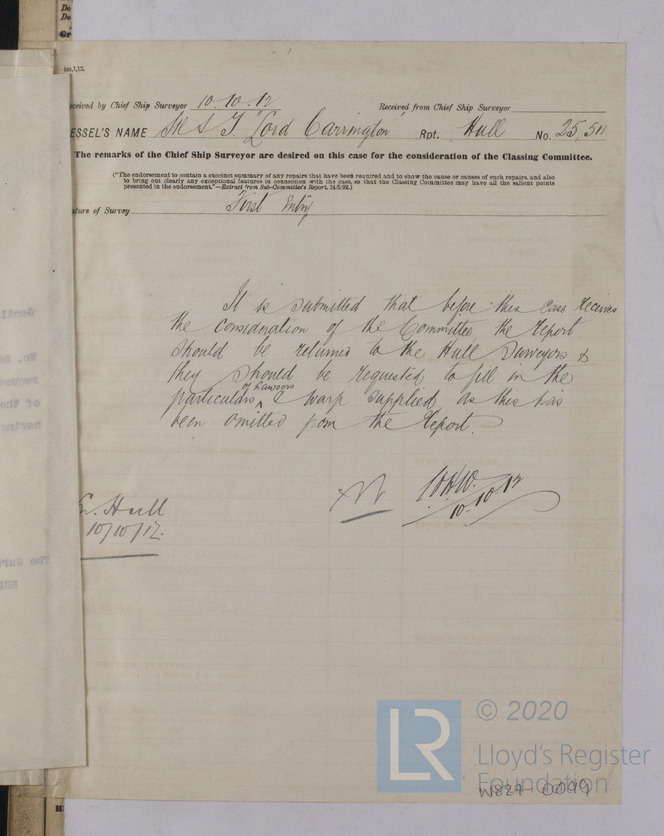 eceived by Chief Ship Surveyor 10.10.12 Received from Chief Ship Surveyor
ESSEL'S NAME "Lord Carrington" Rpt. Hull No. 25,511
The remarks of the Chief Ship Surveyor are desired on this case for the consideration of the Classing Committee.
("The endorsement to contain a succinct summary of any repairs that have been required and to show the cause or causes of such repairs, and also
to bring out clearly any exceptional features in connection with the case, so that the Classing Committee may have all the salient points
presented in the endorsement."—Extract from Sub-Committee's Report, 24/5/92.)
ature of Survey First Entry
It is submitted that before this case receives
the consideration of the Committee the Report
should be returned to the Hull Surveyors &
they should be requested to fill in the
particulars of hawsers & warp supplied as this has
been omitted from the Report.
Hull
10/10/12.
10.10.12
LR
© 2020
Lloyd's Register
Foundation
W829-0099